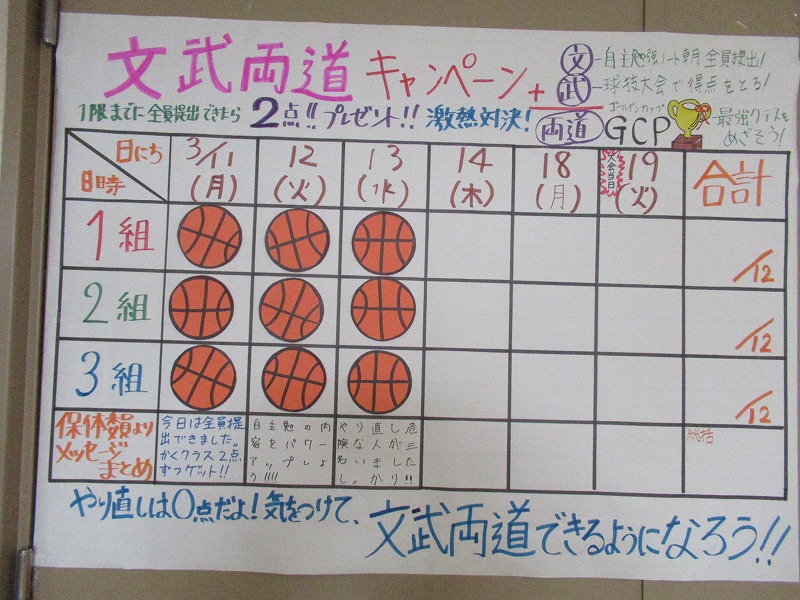 文武両道キャンペーン+
文-自主勉強ノート朝全員提出!
武-球技大会で得点をとる!
1限までに全員提出できたら2点!!プレゼント!!激熱対決!
両道 ゴールデンカップ GCP 最強クラスを
めざそう!
日にち 3/11 12 13 14 18 大会当日 19 合計
日時 (月) (火) (水) (木) (月) (火)
1組 /12
2組 /12
3組 /12
保体委員より
メッセージ
まとめ
今日は全員提
出できました。
かくクラス2点
ずつゲット!!
自主勉の内
容をパワー
アップしよ
う!!!!
やり直し危
険な人が三
名いました
しっかり!!
総括
やり直しは0点だよ!気をつけて、
文武両道できるようになろう!!